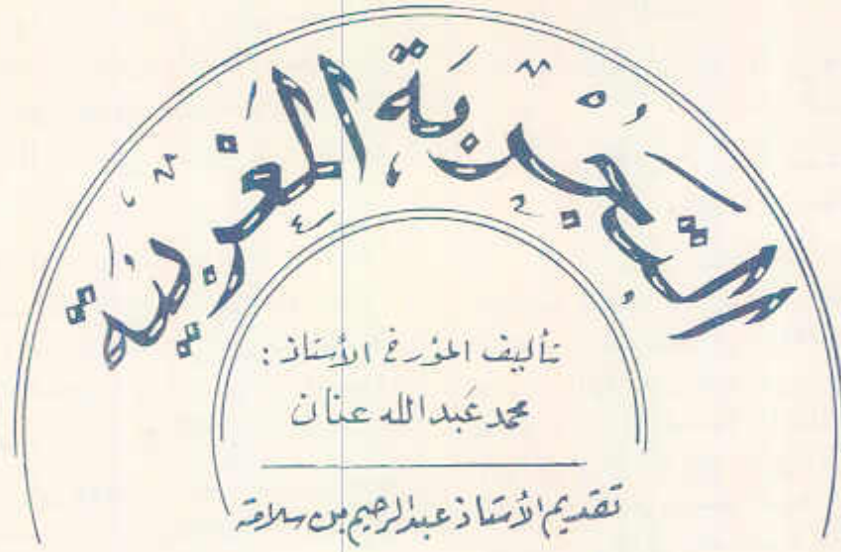 التجربة المغربية
تأليف المؤرخ الأستاذ :
محمد عبد الله عنان
تقديم الأستاذ عبد الرحيم بن سلامة